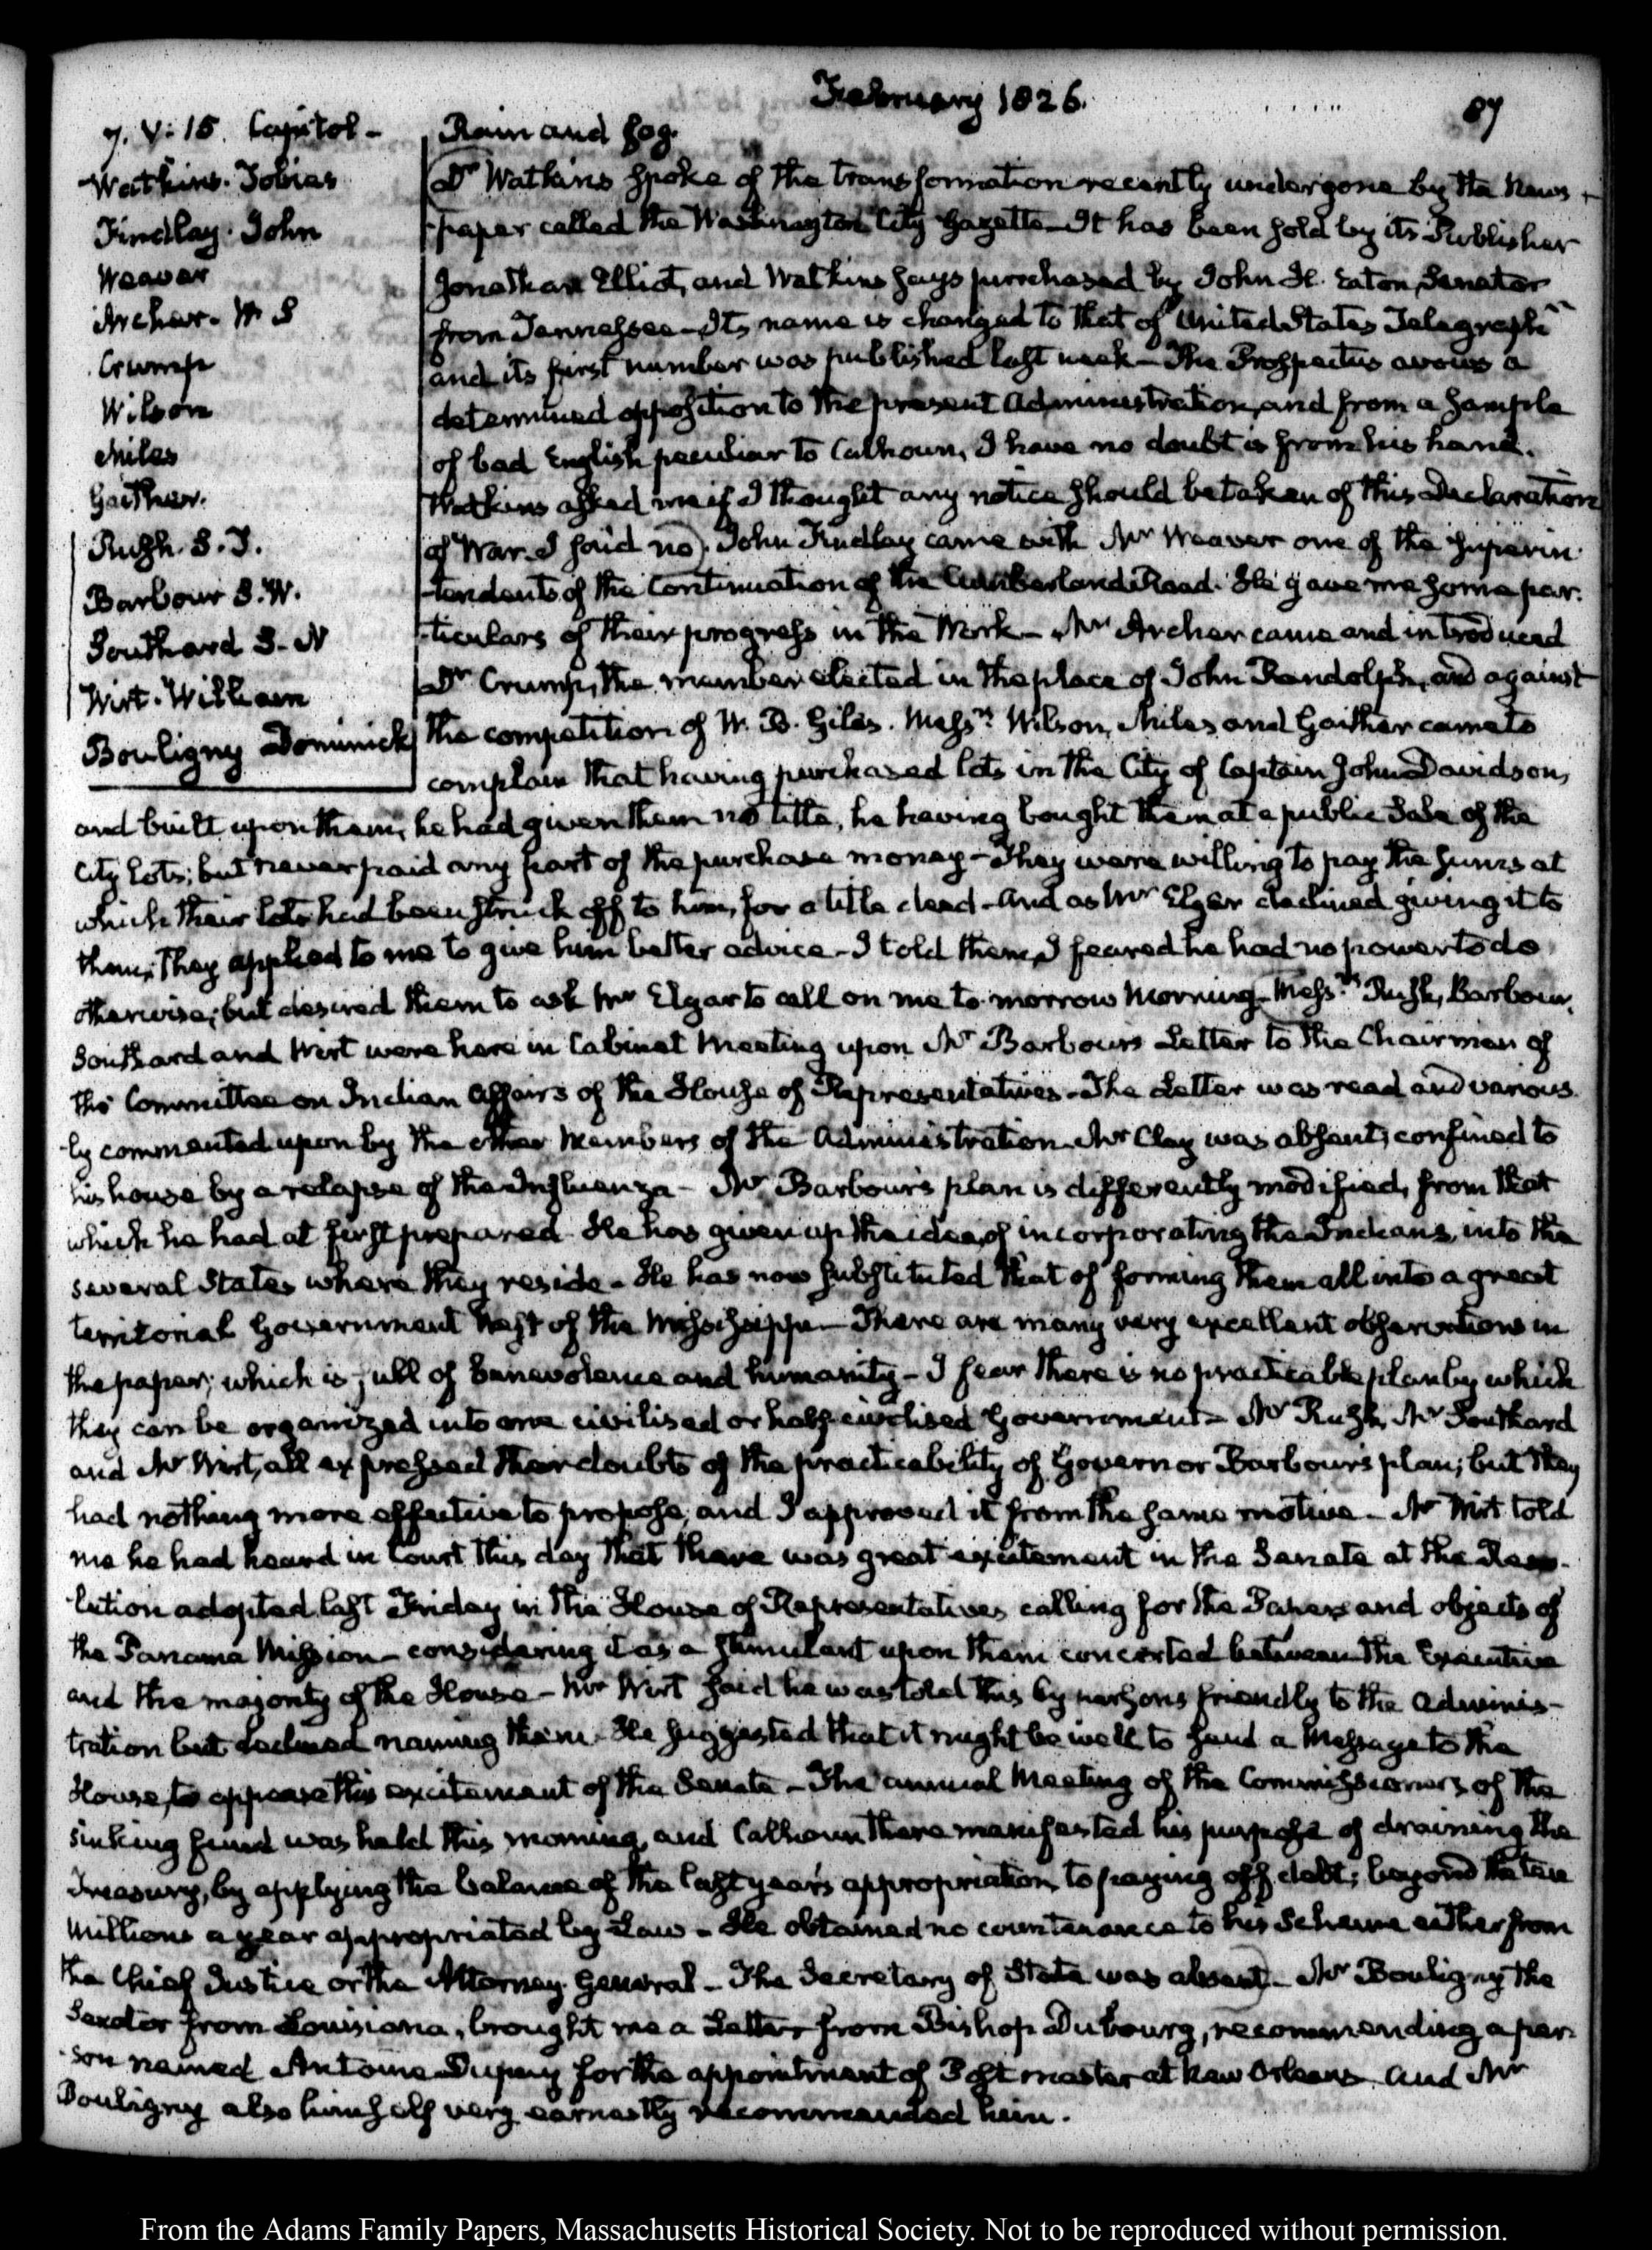 February 1826.
87
7. V:15. Capitol-
Watkins. Tobias
Findlay. John
Weaver
Archer. W S
Crump
Wilson
Miles
Gaither.
Rush. S.T.
Barbour S.W.
Southard S-N
Wirt. William
Bouligny Dominick
Rain and fog.
Dr Watkins spoke of the transformation recently undergone by the News-
paper called the Washington City Gazette—It has been sold by its Publisher
Jonathan Elliot, and Watkins says purchased by John H. Eaton, Senator
from Tennessee—Its name is changed to that of United States Telegraph
and its first number was published last week—The Prospectus avows a
determined opposition to the present Administration, and from a sample
of bad English peculiar to Calhoun, I have no doubt is from his hand.
Watkins asked me if I thought any notice should be taken of this Declaration
of War. I said no. John Findlay came with Mr Weaver one of the Superin-
tendents of the Continuation of the Cumberland Road. He gave me some par-
ticulars of their progress in the Work—Mr Archer came and introduced
Dr Crump, the member elected in the place of John Randolph, and against
the competition of W. B. Giles. Messrs. Wilson, Miles and Gaither came to
complain that having purchased lots in the City of Captain John Davidson,
and built upon them, he had given them no title, he having bought them at a public Sale of the
City Lots; but never paid any part of the purchase money—They were willing to pay the sums at
which their lots had been struck off to him, for a title deed—And as Mr Elgar declined giving it to
them, They applied to me to give him better advice—I told them, I feared he had no power to do
otherwise; but desired them to ask Mr Elgar to call on me to-morrow Morning—Messrs. Rush, Barbour,
Southard and Wirt were here in Cabinet Meeting upon Mr Barbour's Letter to the Chairman of
the Committee on Indian Affairs of the House of Representatives—The Letter was read and various-
ly commented upon by the other Members of the Administration—Mr Clay was absent, confined to
his house by a relapse of the Influenza—Mr Barbour's plan is differently modified, from that
which he had at first prepared. He has given up the idea, of incorporating the Indians, into the
several States where they reside—He has now substituted that of forming them all into a great
territorial Government West of the Mississippi—There are many very excellent observations in
the paper; which is full of benevolence and humanity—I fear there is no practicable plan by which
they can be organized into one civilised or half civilised Government—Mr Rush, Mr Southard
and Mr Wirt, all expressed their doubts of the practicability of Governor Barbour's plan; but they
had nothing more effective to propose, and I approved it from the same motive—Mr Wirt told
me he had heard in Court this day that there was great excitement in the Senate at the Reso-
lution adopted last Friday in the House of Representatives calling for the Papers and objects of
the Panama Mission—considering it as a stimulant upon them concerted between the Executive
and the majority of the House—Mr Wirt said he was told this by persons friendly to the adminis-
tration but declined naming them—He suggested that it might be well to send a Message to the
House, to appease this excitement of the Senate—The annual Meeting of the Commissioners of the
sinking fund was held this morning, and Calhoun there manifested his purpose of draining the
Treasury, by applying the balance of the last year's appropriation, to paying off debt; beyond the ten
Millions a year appropriated by Law—He obtained no countenance to his Scheme either from
the Chief Justice or the Attorney General—The Secretary of State was absent—Mr Bouligny the
Senator from Louisiana, brought me a Letter from Bishop Dubourg, recommending a per-
son named Antoine Dupuy for the appointment of Post master at New Orleans—and Mr
Bouligny also himself very earnestly recommended him.
From the Adams Family Papers, Massachusetts Historical Society. Not to be reproduced without permission.